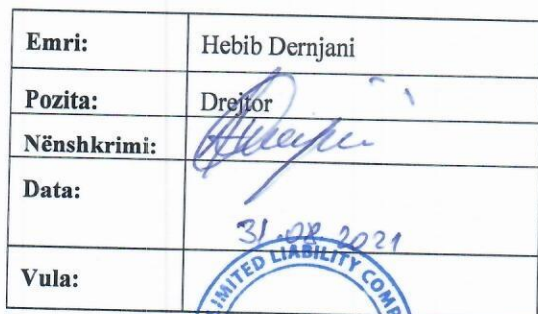 Emri: Hebib Dernjani
Pozita: Drejtor
Nënshkrimi:
Data: 31.08.2021
Vula:
LIMITED LIABILITY COMP